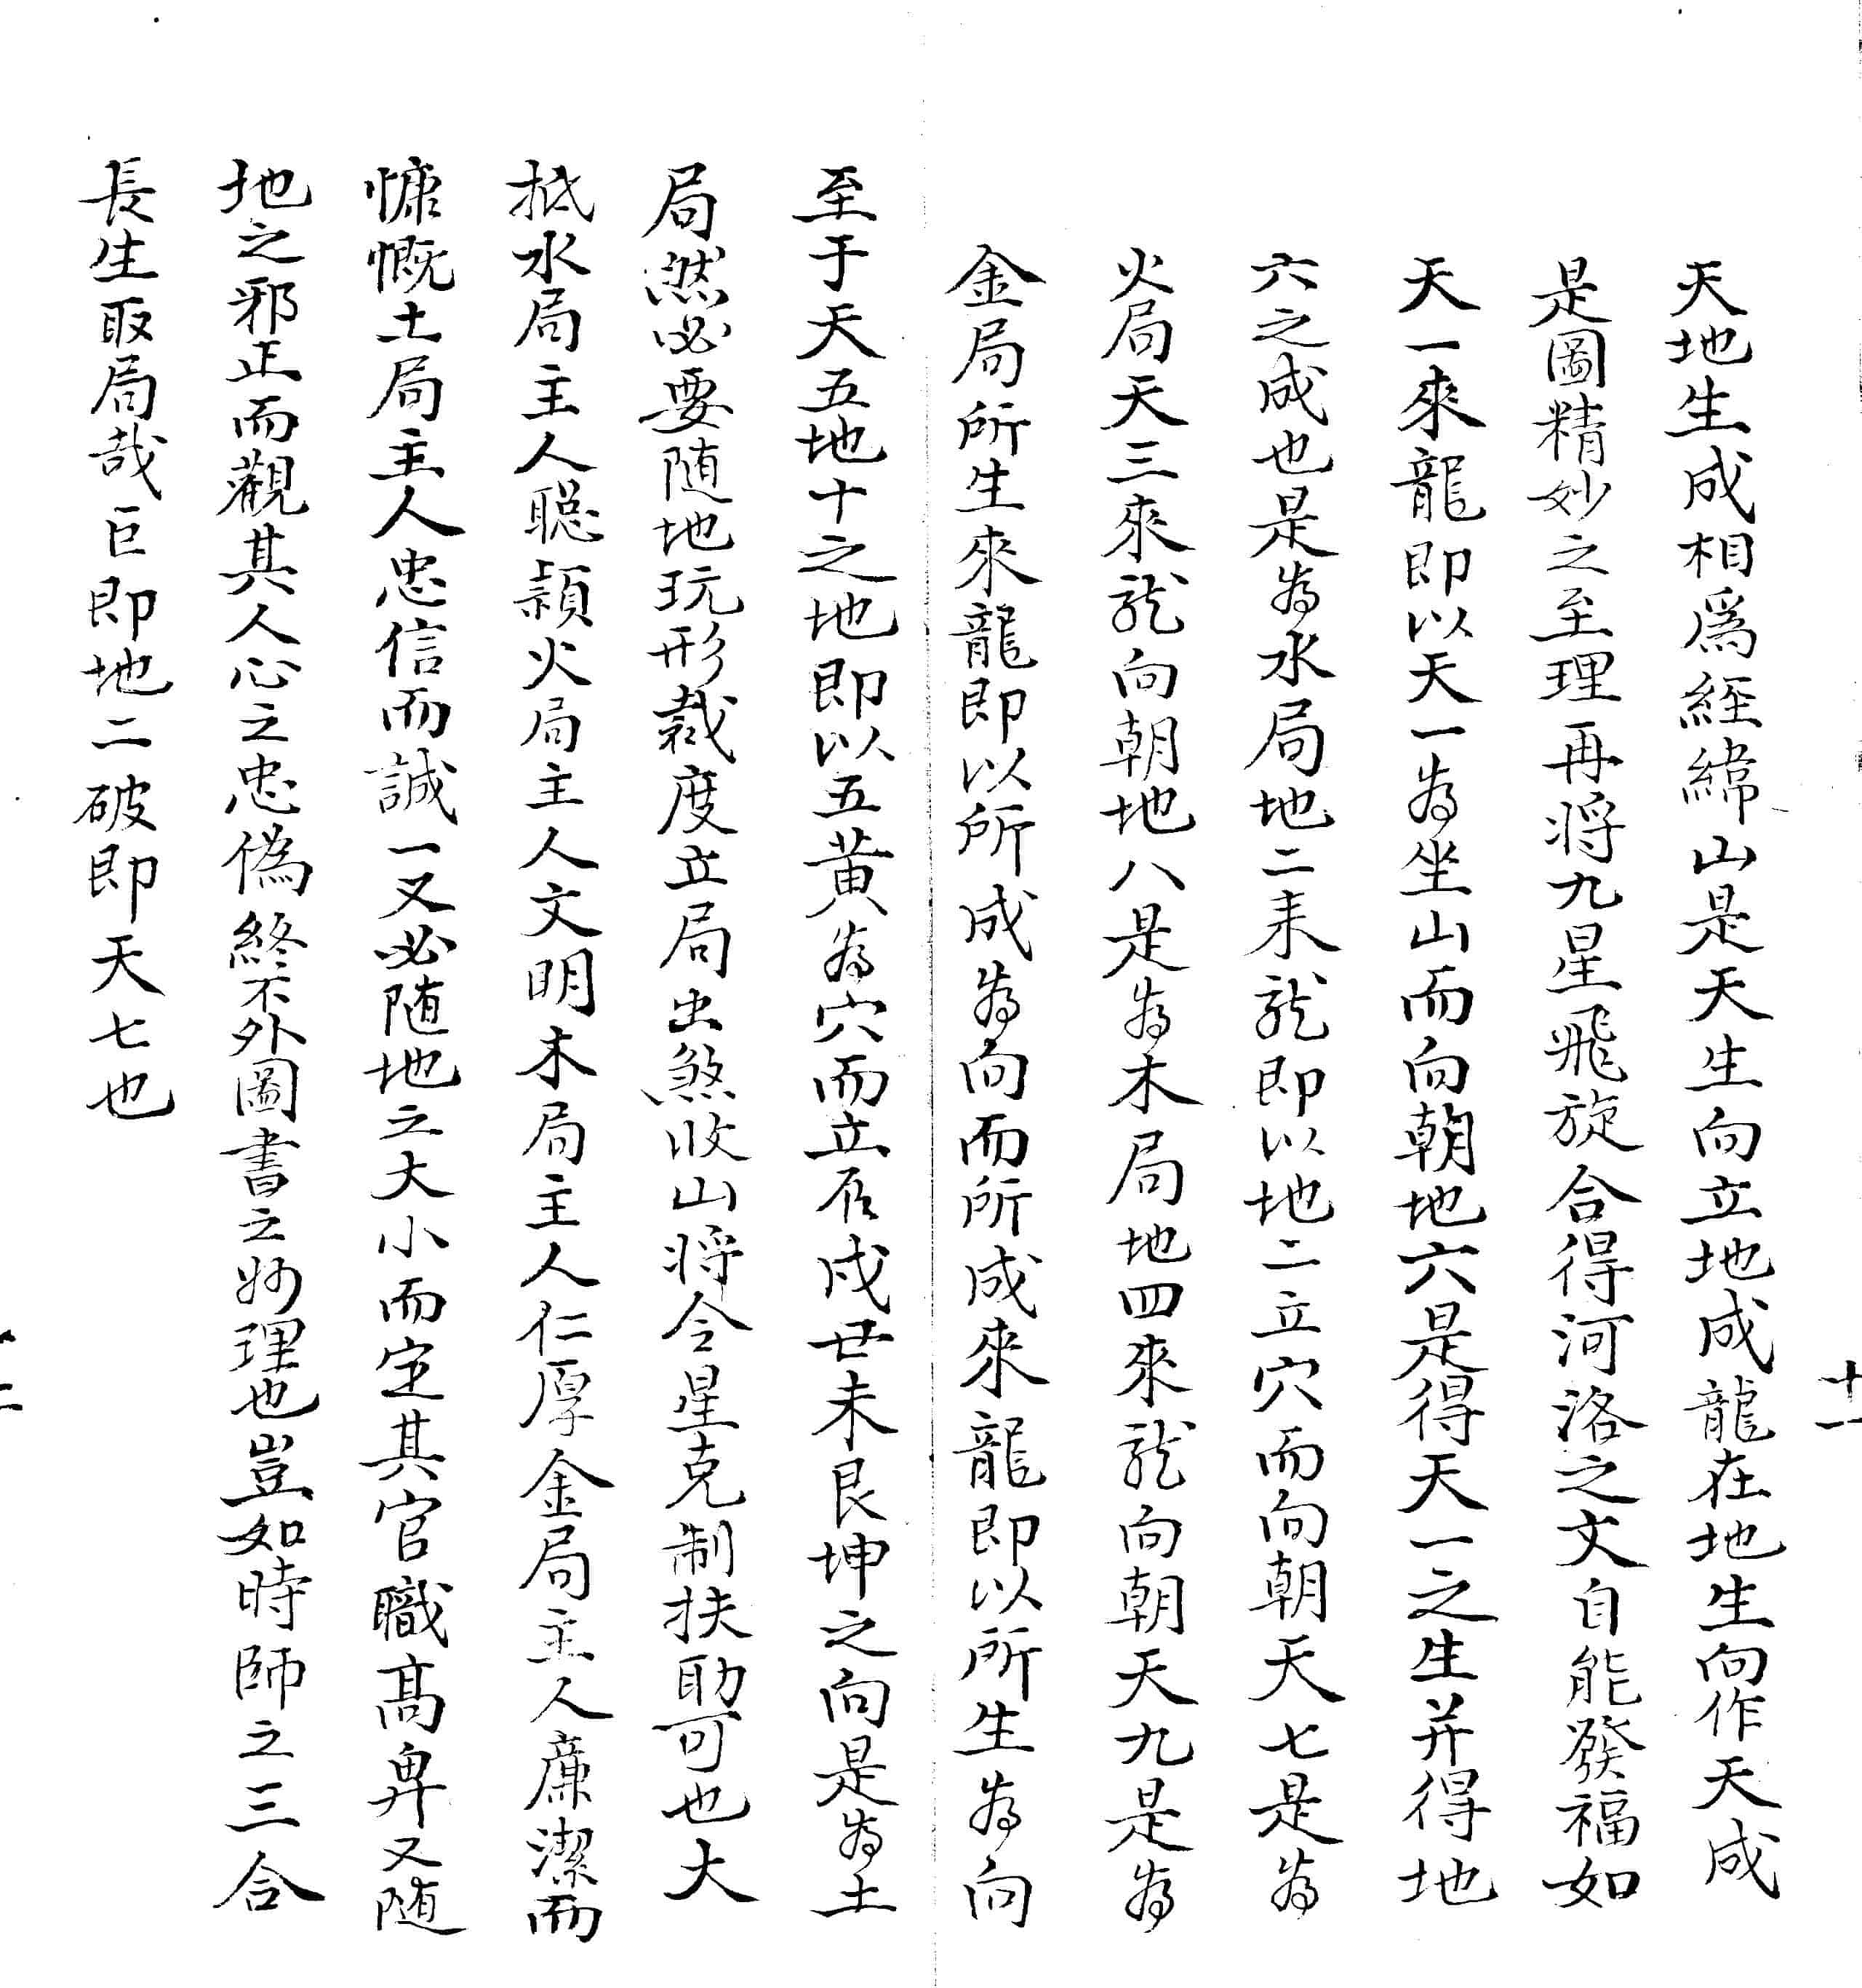 十一
天地生成相爲經緯山是天生向立地成龍在地生向作天成
是圖精妙之至理再将九星飛旋合得河洛之文自能發福如
天一來龍即以天一為坐山而向朝地六是得天一之生并得地
六之成也是為水局地二耒龍即以地二立穴而向朝天七是為
火局天三來龍向朝地八是為木局地四來龍向朝天九是為
金局所生來龍即以所成為向而所成來龍即以所生為向
至于天五地十之地即以五黄為穴而立辰戌丑未艮坤之向是為土
局然必要随地玩形裁度立局出煞收山将令星克制扶助可也大
抵水局主人聡穎火局主人文明木局主人仁厚金局主人廉潔而
慷慨土局主人忠信而誠一又必随地之大小而定其官職髙卑又随
地之邪正而觀其人心之忠偽終不外圖書之妙理也豈如時師之三合
長生取局哉巨即地二破即天七也